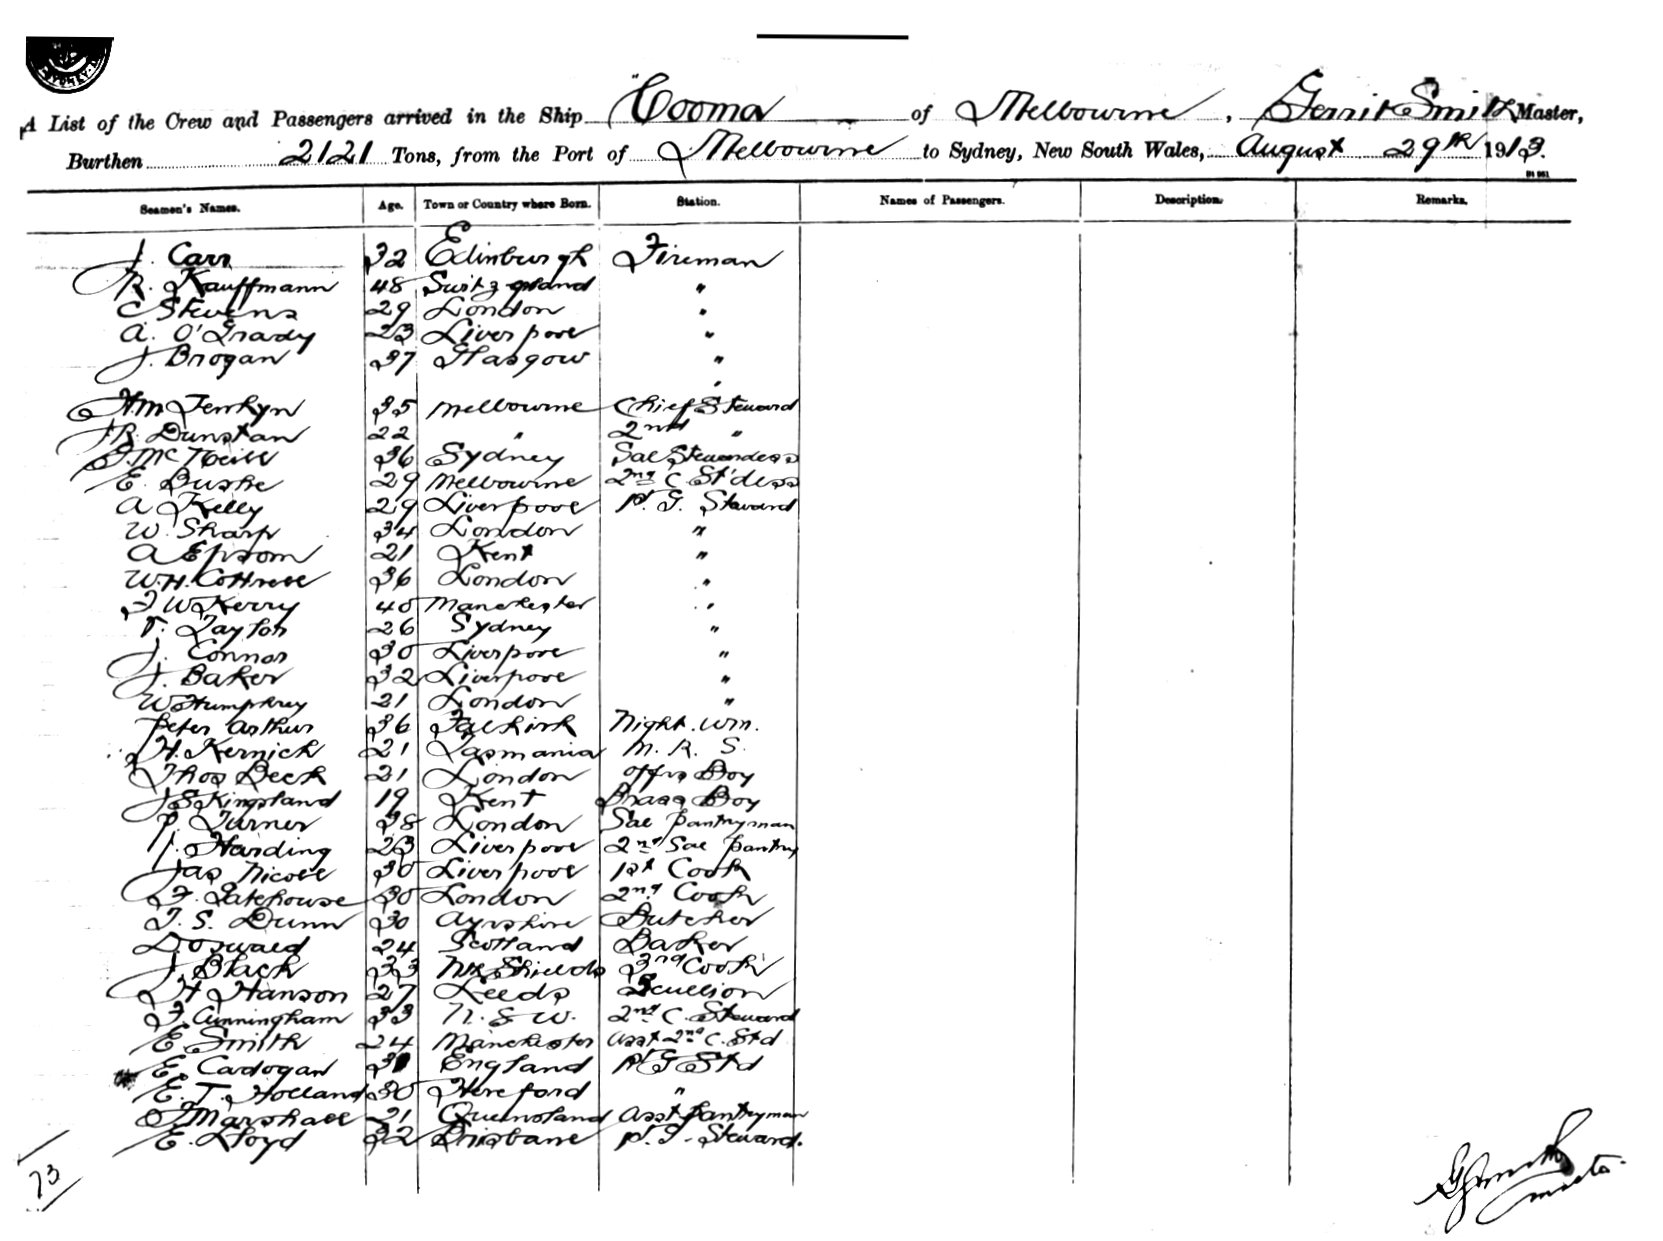 SYDNEY
A List of the Crew and Passengers arrived in the Ship "Cooma of Melbourne, Gerrit Smith Master,
Burthen 2121 Tons, from the Port of Melbourne to Sydney, New South Wales, August 29th 1913.
Seamen's Names. Age. Town or Country where Born. Station. Names of Passengers. Description. Remarks.
J. Carr 32 Edinburgh Fireman
R. Kauffmann 48 Switzerland "
C Stevens 29 London "
A. O'Grady 23 Liverpool "
J. Brogan 37 Glasgow "
Hm Jenkyn 35 Melbourne Chief Steward
J R. Dunstan 22 " 2nd "
McNeill 36 Sydney Sal Stewardess
E. Bushe 29 Melbourne 2nd C St'dess
A Kelly 29 Liverpool P. G. Steward
W. Sharp 34 London "
A Epsom 21 Kent "
W.H. Cottrell 36 London "
J W Kerry 40 Manchester "
T. Taylor 26 Sydney "
J. Connor 30 Liverpool "
J. Baker 32 Liverpool "
W Humphrey 21 London "
Peter Arthur 36 Falkirk Night. Wm.
H. Kernick 21 Tasmania M. R. S.
Thos Beck 21 London Offrs Boy
J S Kingsland 19 Kent Brass Boy
P. Turner 38 London Sal Pantryman
J. Harding 23 Liverpool 2nd Sal Pantry
Jas Nicoll 30 Liverpool 1st Cook
F. Gatehouse 30 London 2nd Cook
T. S. Dunn 30 Ayrshire Butcher
D. Oswald 24 Scotland Baker
J. Black 33 Nth Shields 3rd Cook
H Hanson 27 Leeds Scullion
J. Cunningham 33 N. S W. 2nd C. Steward
E Smith 24 Manchester Asst 2nd C. Std
E. Cadogan England P G Std
E. T. Holland 30 Hereford "
J Marshall 21 Queensland Asst Pantryman
E. Lloyd 32 Brisbane P. G. Steward.
73
G Smith
Master